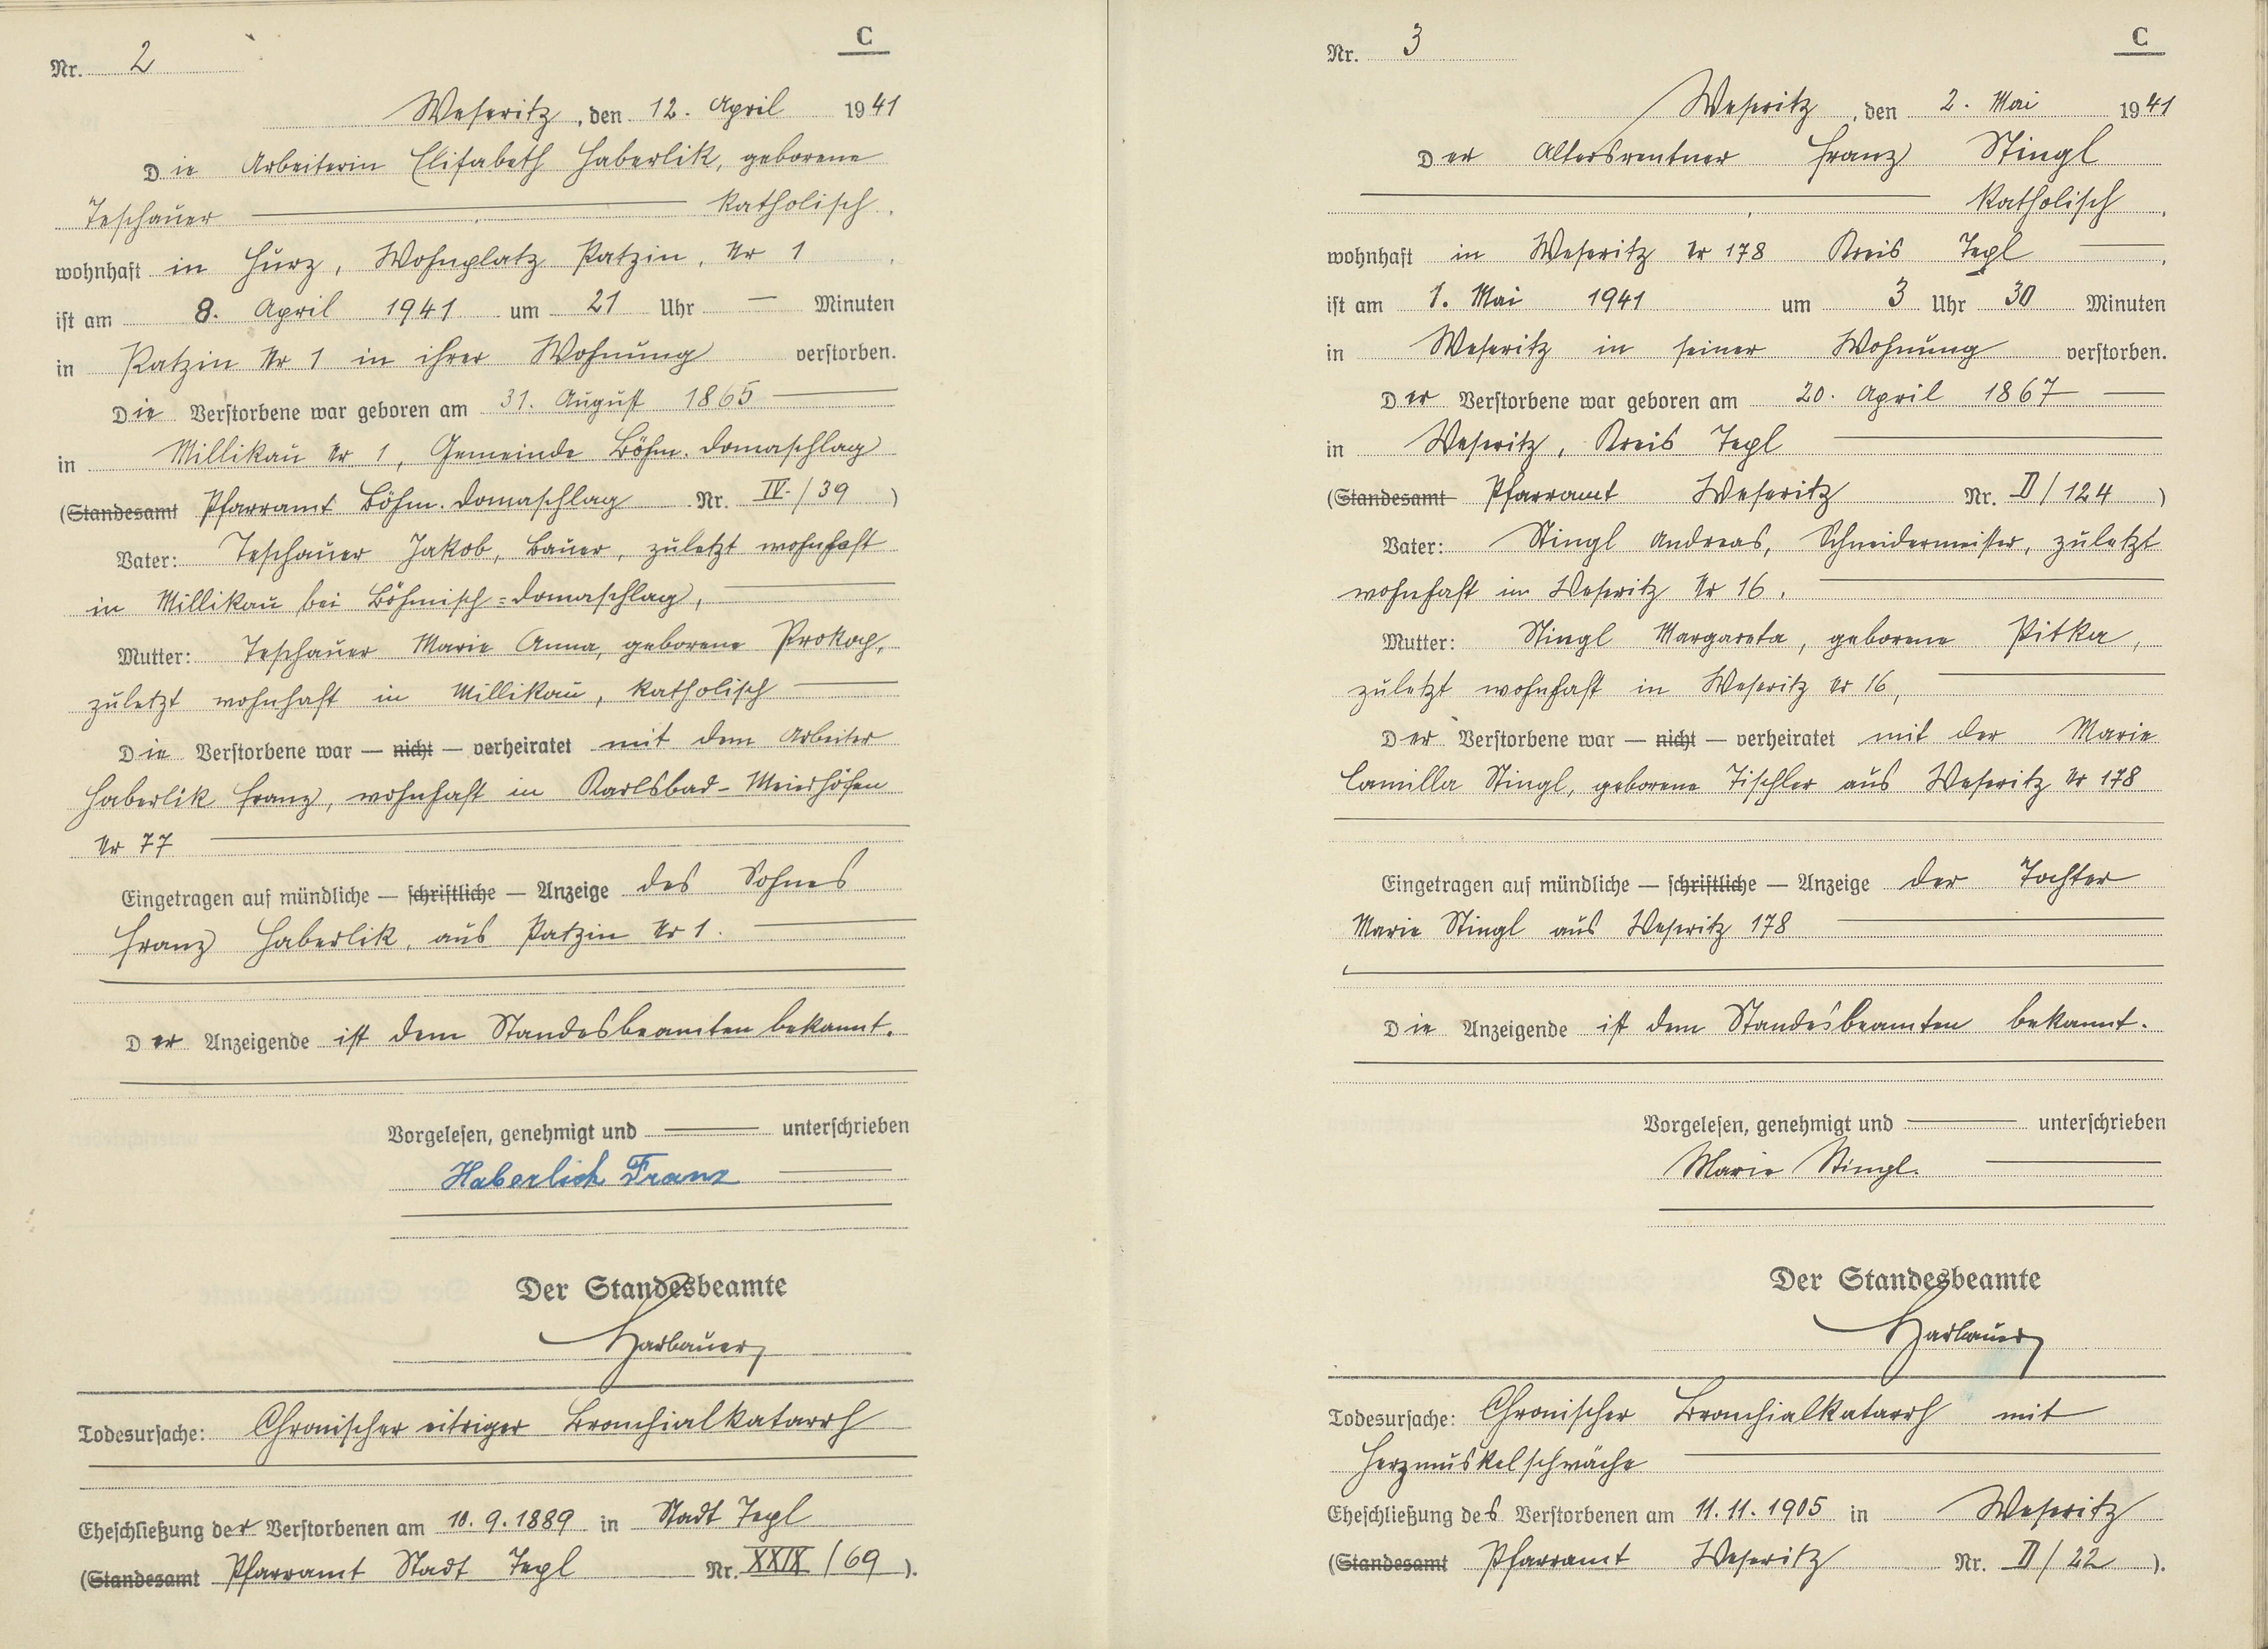 C
Nr. 2
Weseritz, den 12. April 1941
Die Arbeiterin Elisabeth Haberlik, geborene
Teschauer katholisch,
wohnhaft in Hurz, Wohnplatz Patzin, Nr 1,
ist am 8. April 1941 um 21 Uhr — Minuten
in Patzin Nr 1 in ihrer Wohnung verstorben.
Die Verstorbene war geboren am 31. August 1865
in Millikau Nr 1, Gemeinde Böhm. Domaschlag
(Standesamt Pfarramt Böhm. Domaschlag Nr. IV./39)
Vater: Teschauer Jakob, Bauer, zuletzt wohnhaft
in Millikau bei Böhmisch-Domaschlag,
Mutter: Teschauer Marie Anna, geborene Prokop,
zuletzt wohnhaft in Millikau, katholisch
Die Verstorbene war — nicht — verheiratet mit dem Arbeiter
Haberlik Franz, wohnhaft in Karlsbad-Meierhöfen
Nr 77
Eingetragen auf mündliche — schriftliche — Anzeige des Sohnes
Franz Haberlik, aus Patzin Nr 1.
Der Anzeigende ist dem Standesbeamten bekannt.
Vorgelesen, genehmigt und — unterschrieben
Haberlick Franz
Der Standesbeamte
Harbauer
Todesursache: Chronischer eitriger Bronchialkatarrh
Eheschließung der Verstorbenen am 10.9.1889 in Stadt Tepl
(Standesamt Pfarramt Stadt Tepl Nr. XXIX/69).
C
Nr. 3
Weseritz, den 2. Mai 1941
Der Altersrentner Franz Stingl
katholisch,
wohnhaft in Weseritz Nr 178 Kreis Tepl,
ist am 1. Mai 1941 um 3 Uhr 30 Minuten
in Weseritz in seiner Wohnung verstorben.
Der Verstorbene war geboren am 20. April 1867
in Weseritz, Kreis Tepl
(Standesamt Pfarramt Weseritz Nr. II/124)
Vater: Stingl Andreas, Schneidermeister, zuletzt
wohnhaft in Weseritz Nr 16.
Mutter: Stingl Margareta, geborene Pitka,
zuletzt wohnhaft in Weseritz Nr 16,
Der Verstorbene war — nicht — verheiratet mit der Marie
Camilla Stingl, geborene Tischler aus Weseritz Nr 178
Eingetragen auf mündliche — schriftliche — Anzeige der Tochter
Marie Stingl aus Weseritz 178
Die Anzeigende ist dem Standesbeamten bekannt.
Vorgelesen, genehmigt und — unterschrieben
Marie Stingl.
Der Standesbeamte
Harbauer
Todesursache: Chronischer Bronchialkatarrh mit
Herzmuskelschwäche
Eheschließung des Verstorbenen am 11.11.1905 in Weseritz
(Standesamt Pfarramt Weseritz Nr. II/22).